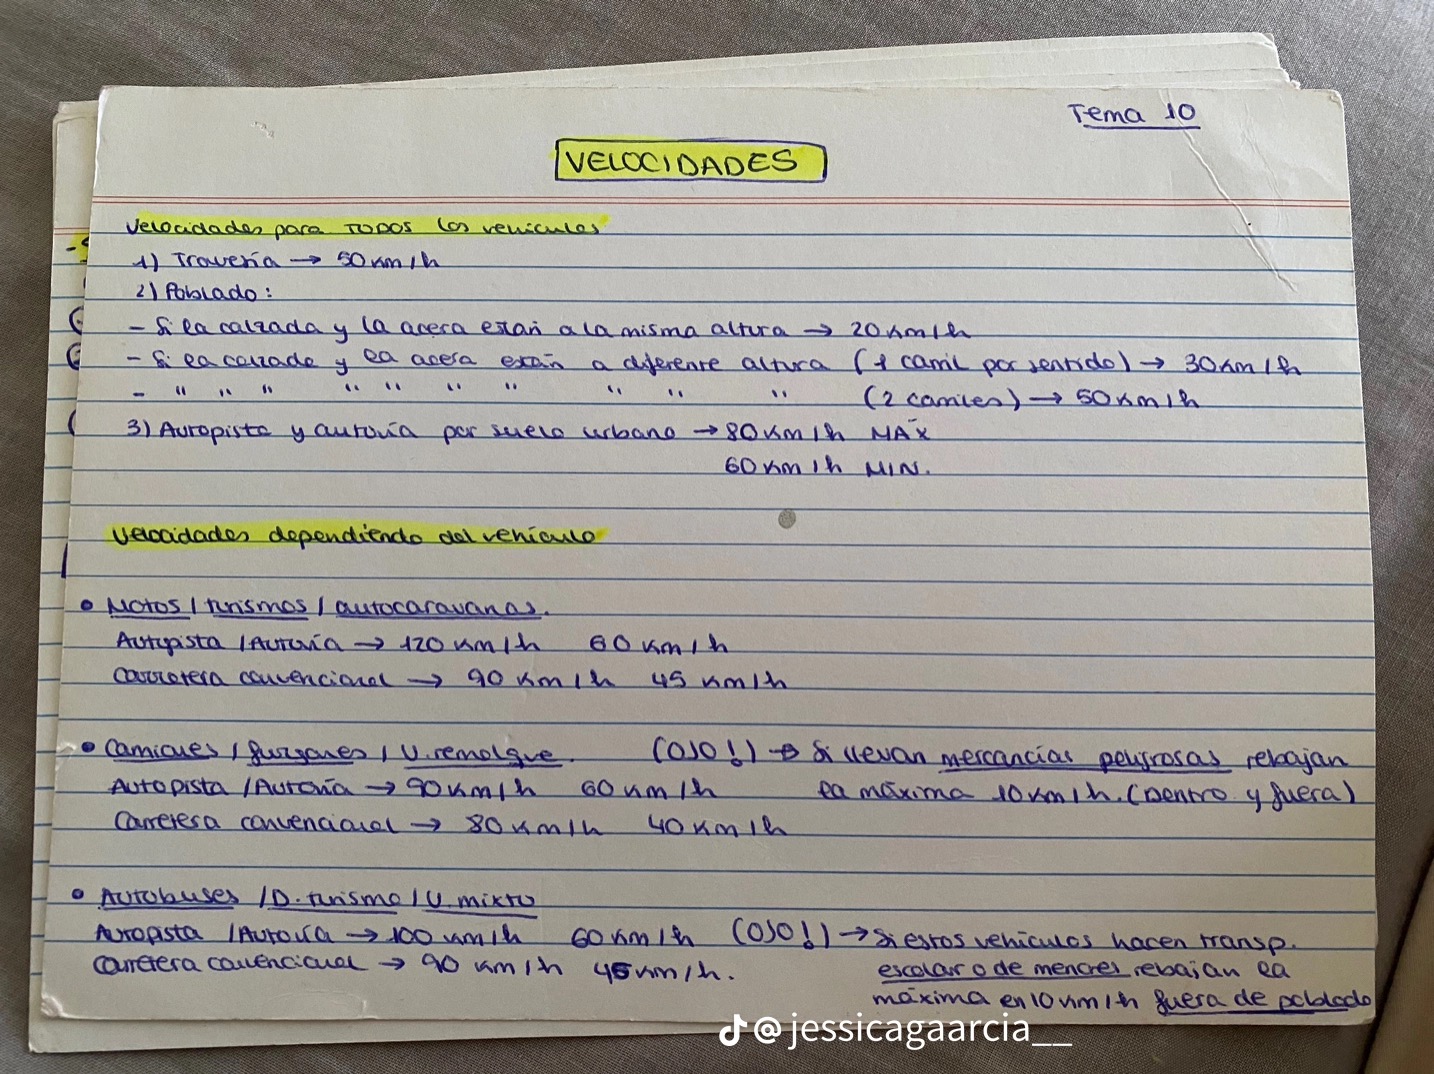 Tema 10
VELOCIDADES
Velocidades para TODOS los vehículos
1) Travesía → 50 km/h
2) Poblado:
- Si la calzada y la acera están a la misma altura → 20 km/h
- Si la calzada y la acera están a diferente altura (1 carril por sentido) → 30 km/h
- " " " " " " " " " " (2 carriles) → 50 km/h
3) Autopista y autovía por suelo urbano → 80 km/h MÁX
60 km/h MIN.
Velocidades dependiendo del vehículo
• Motos / turismos / autocaravanas.
Autopista / Autovía → 120 km/h 60 km/h
Carretera convencional → 90 km/h 45 km/h
• Camiones / furgones / V. remolque. (OJO!) → Si llevan mercancías peligrosas rebajan
Autopista / Autovía → 90 km/h 60 km/h la máxima 10 km/h. (Dentro y fuera)
Carretera convencional → 80 km/h 40 km/h
• Autobuses / D. turismo / V. mixto
Autopista / Autovía → 100 km/h 60 km/h (OJO!) → Si estos vehículos hacen transp.
Carretera convencional → 90 km/h 45 km/h. escolar o de menores rebajan la
máxima en 10 km/h fuera de poblado
@jessicagaarcia__